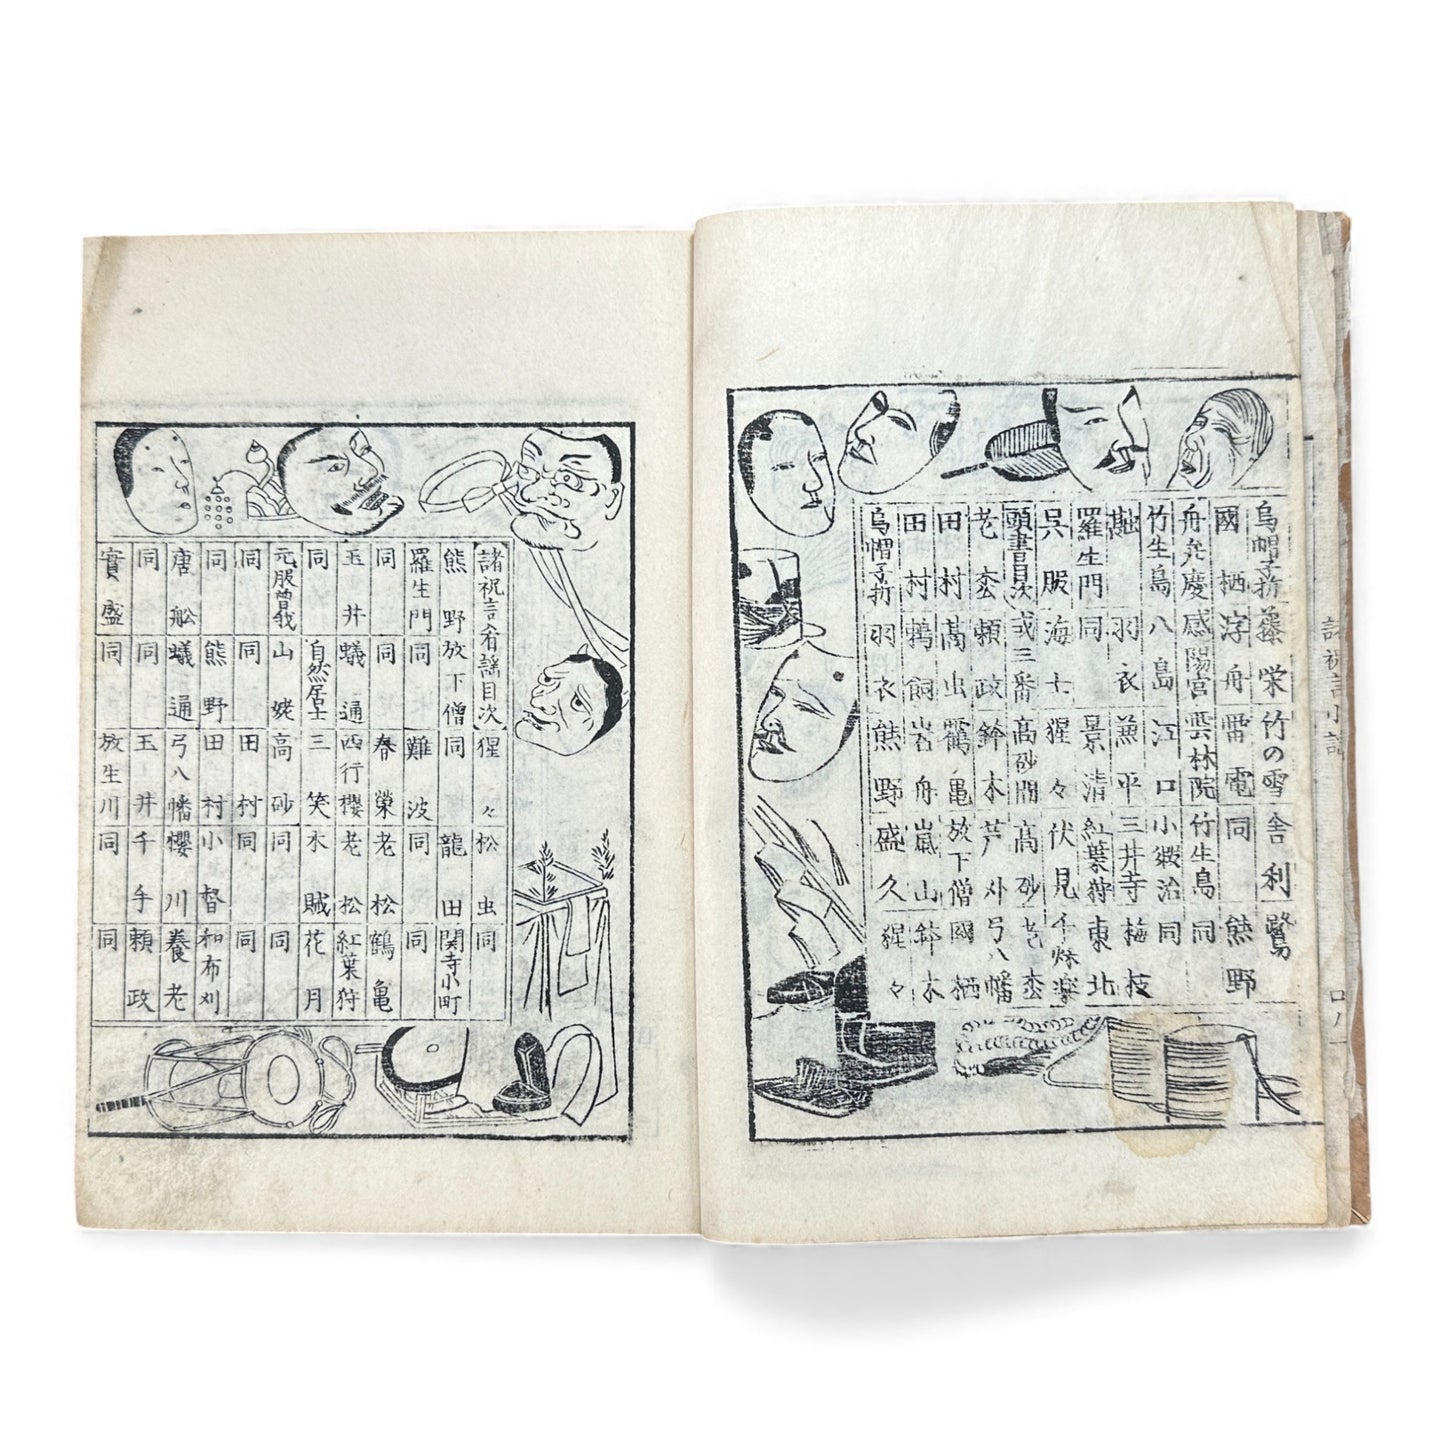 諸祝言小謡
烏帽子折 藤栄 竹の雪 舎利 鷺
國栖 浮舟 雷電 同 熊野
舟弁慶 咸陽宮 雲林院 竹生島 同
竹生島 八島 江口 小鍛冶 同
羽衣 兼平 三井寺 梅枝
羅生門 同 景清 紅葉狩 東北
呉服 海士 猩々 伏見 千秋楽
頭書目次 三番 高砂 高砂 老松
老松 頼政 鉢木 芦刈 弓八幡
田村 鶴亀 放下僧 國栖
田村 鵜飼 岩舟 嵐山 鉢木
烏帽子折 羽衣 熊野 盛久 猩々
諸祝言肴謡目次 猩々 松虫 同
熊野 放下僧 同 龍田 関寺小町
羅生門 同 難波 同 同
同 同 春榮 老松 鶴亀
玉井 蟻通 西行櫻 老松 紅葉狩
同 自然居士 三笑 木賊 花月
元服曽我 山姥 高砂 同 同
同 同 田村 同 同
同 熊野 田村 小督 和布刈
唐舩 蟻通 弓八幡 櫻川 養老
同 同 玉井 千手 頼政
實盛 同 放生川 同 同